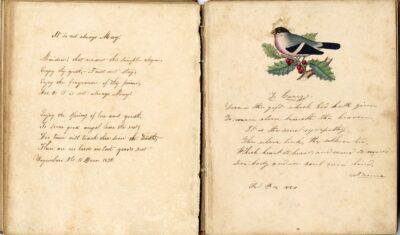 It is not always May.
Maiden, that read'st this simple rhyme,
Enjoy thy youth, it will not stay;
Enjoy the fragrance of thy prime,
For O! it is not always May!
Enjoy the Spring of love and youth,
To some good angel leave the rest;
For time will teach thee soon the truth,
There are no birds in last year's nest
To
the gift which God hath given
To man alone beneath the heaven
It is the secret sympathy,
The silver link, the silken tie,
Which heart to heart, and mind to mind
In body and in soul can bind.